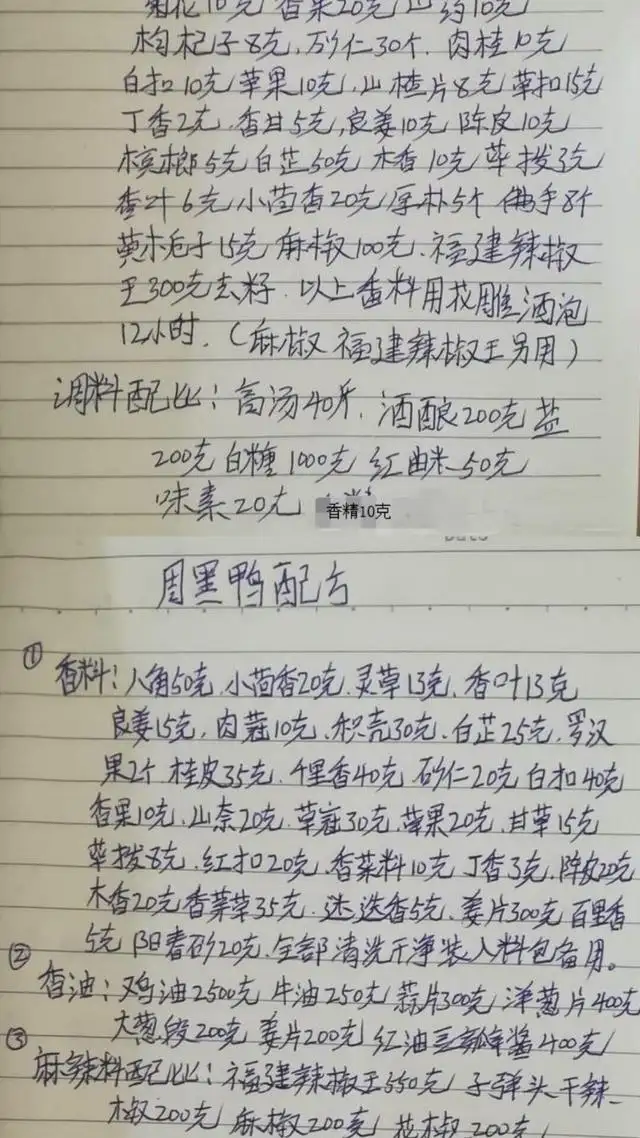 菊花10克 香果20克 山药10克
枸杞子8克,砂仁30个.肉桂10克
白扣10克草果10克.山楂片8克草扣15克
丁香2克.香甘5克,良姜10克 陈皮10克
槟榔5克白芷50克 木香10克 荜拨3克
香叶6克小茴香20克厚朴5个 佛手8个
黄木卮子15克 麻椒100克、福建辣椒
王300克去籽.以上香料用花雕酒泡
12小时.(麻椒 福建辣椒王另用)
调料配比:高汤40斤.酒酿200克盐
200克白糖1000克 红曲米50克
味素20克 香精10克
周黑鸭配方
① 香料:八角50克,小茴香20克.灵草13克.香叶13克
良姜15克,肉蔻10克、枳壳30克.白芷25克.罗汉
果2个 桂皮35克.千里香40克 砂仁20克白扣40克
香果10克.山奈20克.草蔻30克.草果20克.甘草15克
荜拨8克.红扣20克.香菜料10克 丁香3克.陈皮20克
木香20克香菜草35克.迷迭香5克.姜片300克百里香
5克 阳春砂20克.全部清洗干净装入料包备用。
② 香油:鸡油2500克 牛油250克 蒜片300克 洋葱片400克
大葱段200克 姜片200克 红油豆瓣酱400克
③ 麻辣料配比:福建辣椒王550克 子弹头干辣
椒200克 麻椒200克 花椒200克